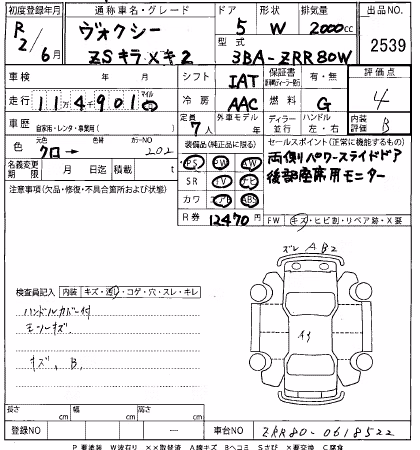 初度登録年月 通称車名・グレード ドア 形状 排気量 出品NO
R2/6月 ヴォクシー 5 W 2000cc 2539
ZSキラメキ2 型式 3BA-ZRR80W
車検 年 月 シフト IAT 保証書 有・無 評価点
走行 11万4千901 マイル 冷房 AAC 燃料 G 4
車歴 自家用・レンタ・事業用( ) 定員 7人 外車モデル年 ディーラー 並行 ハンドル 左・右 内装評価 B
色 元色 クロ → 色替 カラーNO 202 装備品(純正品に限る) セールスポイント(正常に機能するもの)
名義変更期限 月 日 積載 t PS PW AW 両側パワースライドドア
注意事項(欠品・修復・不具合箇所および状態) SR TV ナビ 後部座席用モニター
カワ エアB ABS
R券 12470円 FW キズ・ヒビ割・リペア跡・X要
ズレ AB2
検査員記入 内装 キズ・汚レ・コゲ・穴・スレ・キレ
ハンドルカバー付
モールキズ
キズ、B、
長さ cm 幅 cm 高さ cm
登録NO — 車台NO ZRR80-0618522
P要塗装 W波有り ××取替済 A線キズ Bヘコミ Sさび ×要交換 C腐食